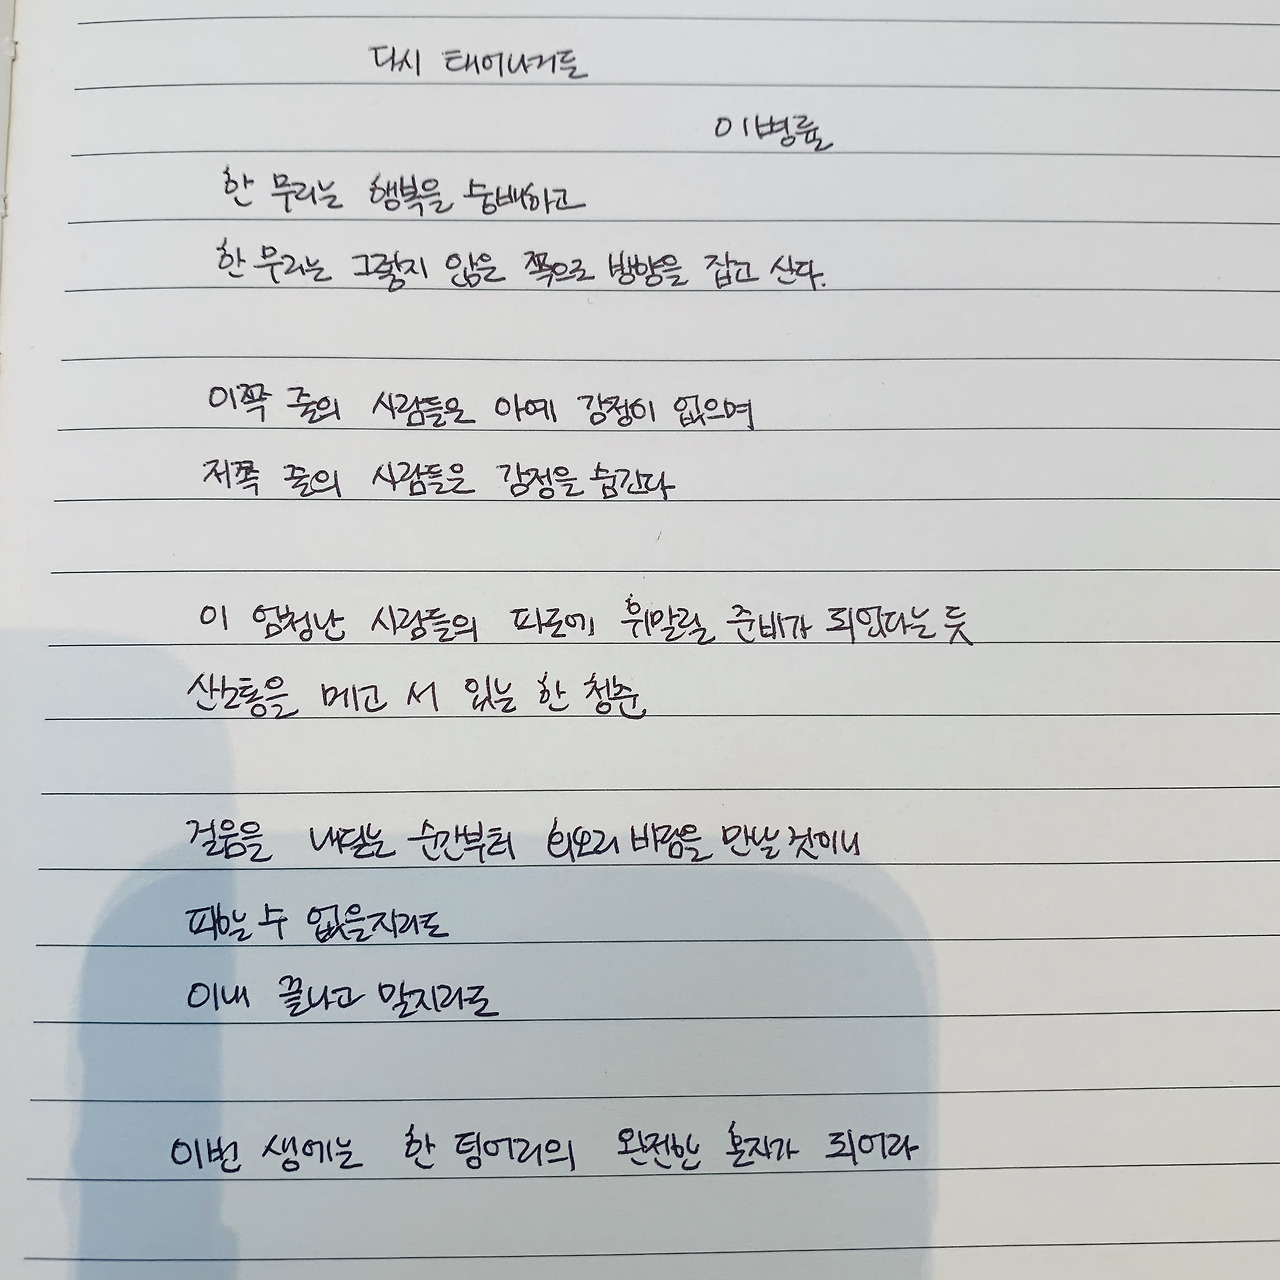 다시 태어나거든
이병률
한 무리는 행복을 숭배하고
한 무리는 그렇지 않은 쪽으로 방향을 잡고 산다.
이쪽 줄의 사람들은 아예 감정이 없으며
저쪽 줄의 사람들은 감정을 숨긴다
이 엄청난 사람들의 파도에 휘말릴 준비가 되었다는 듯
산소통을 메고 서 있는 한 청춘
걸음을 내딛는 순간부터 회오리 바람을 만날 것이니
피할 수 없을지라도
이내 끝나고 말지라도
이번 생에는 한 덩어리의 완전한 혼자가 되어라